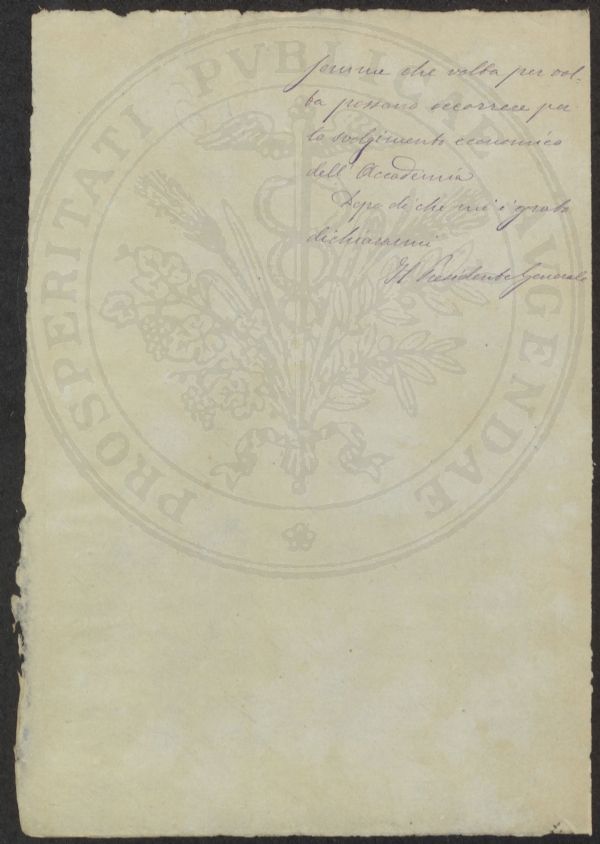 somme che volta per vol-
ta possano occorrere per
lo svolgimento economico
dell'Accademia
Dopo di che mi è grato
dichiararmi
Il Presidente Generale
PROSPERITATI PVBLICAE AVGENDAE